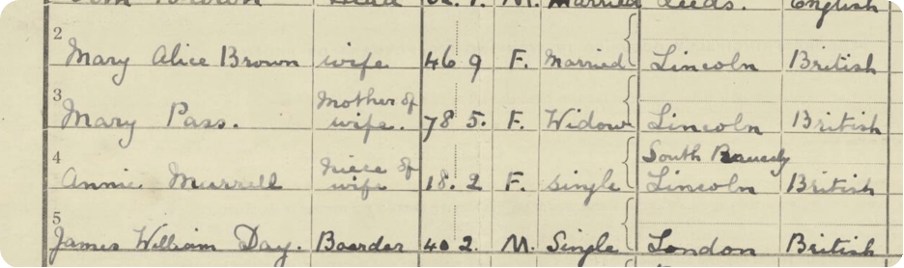 Married Leeds. English
2 Mary Alice Brown wife 46 9 F. Married Lincoln British
3 Mary Pass. Mother of wife. 78 5. F. Widow Lincoln British
4 Annie Murrell Niece of wife 18. 2 F. Single South Lincoln British
5 James William Day. Boarder 40 2. M. Single London British